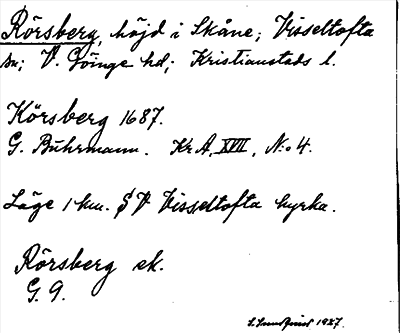 Rörsberg, höjd i Skåne; Visseltofta
sn; V. Göinge hd; Kristianstads l.
Körsberg 1687.
G. Buhrmann. Kr. A. XVII, N:o 4.
Läge 1 km. S V Visseltofta kyrka.
Rörsberg ek.
G. 9.
1927.